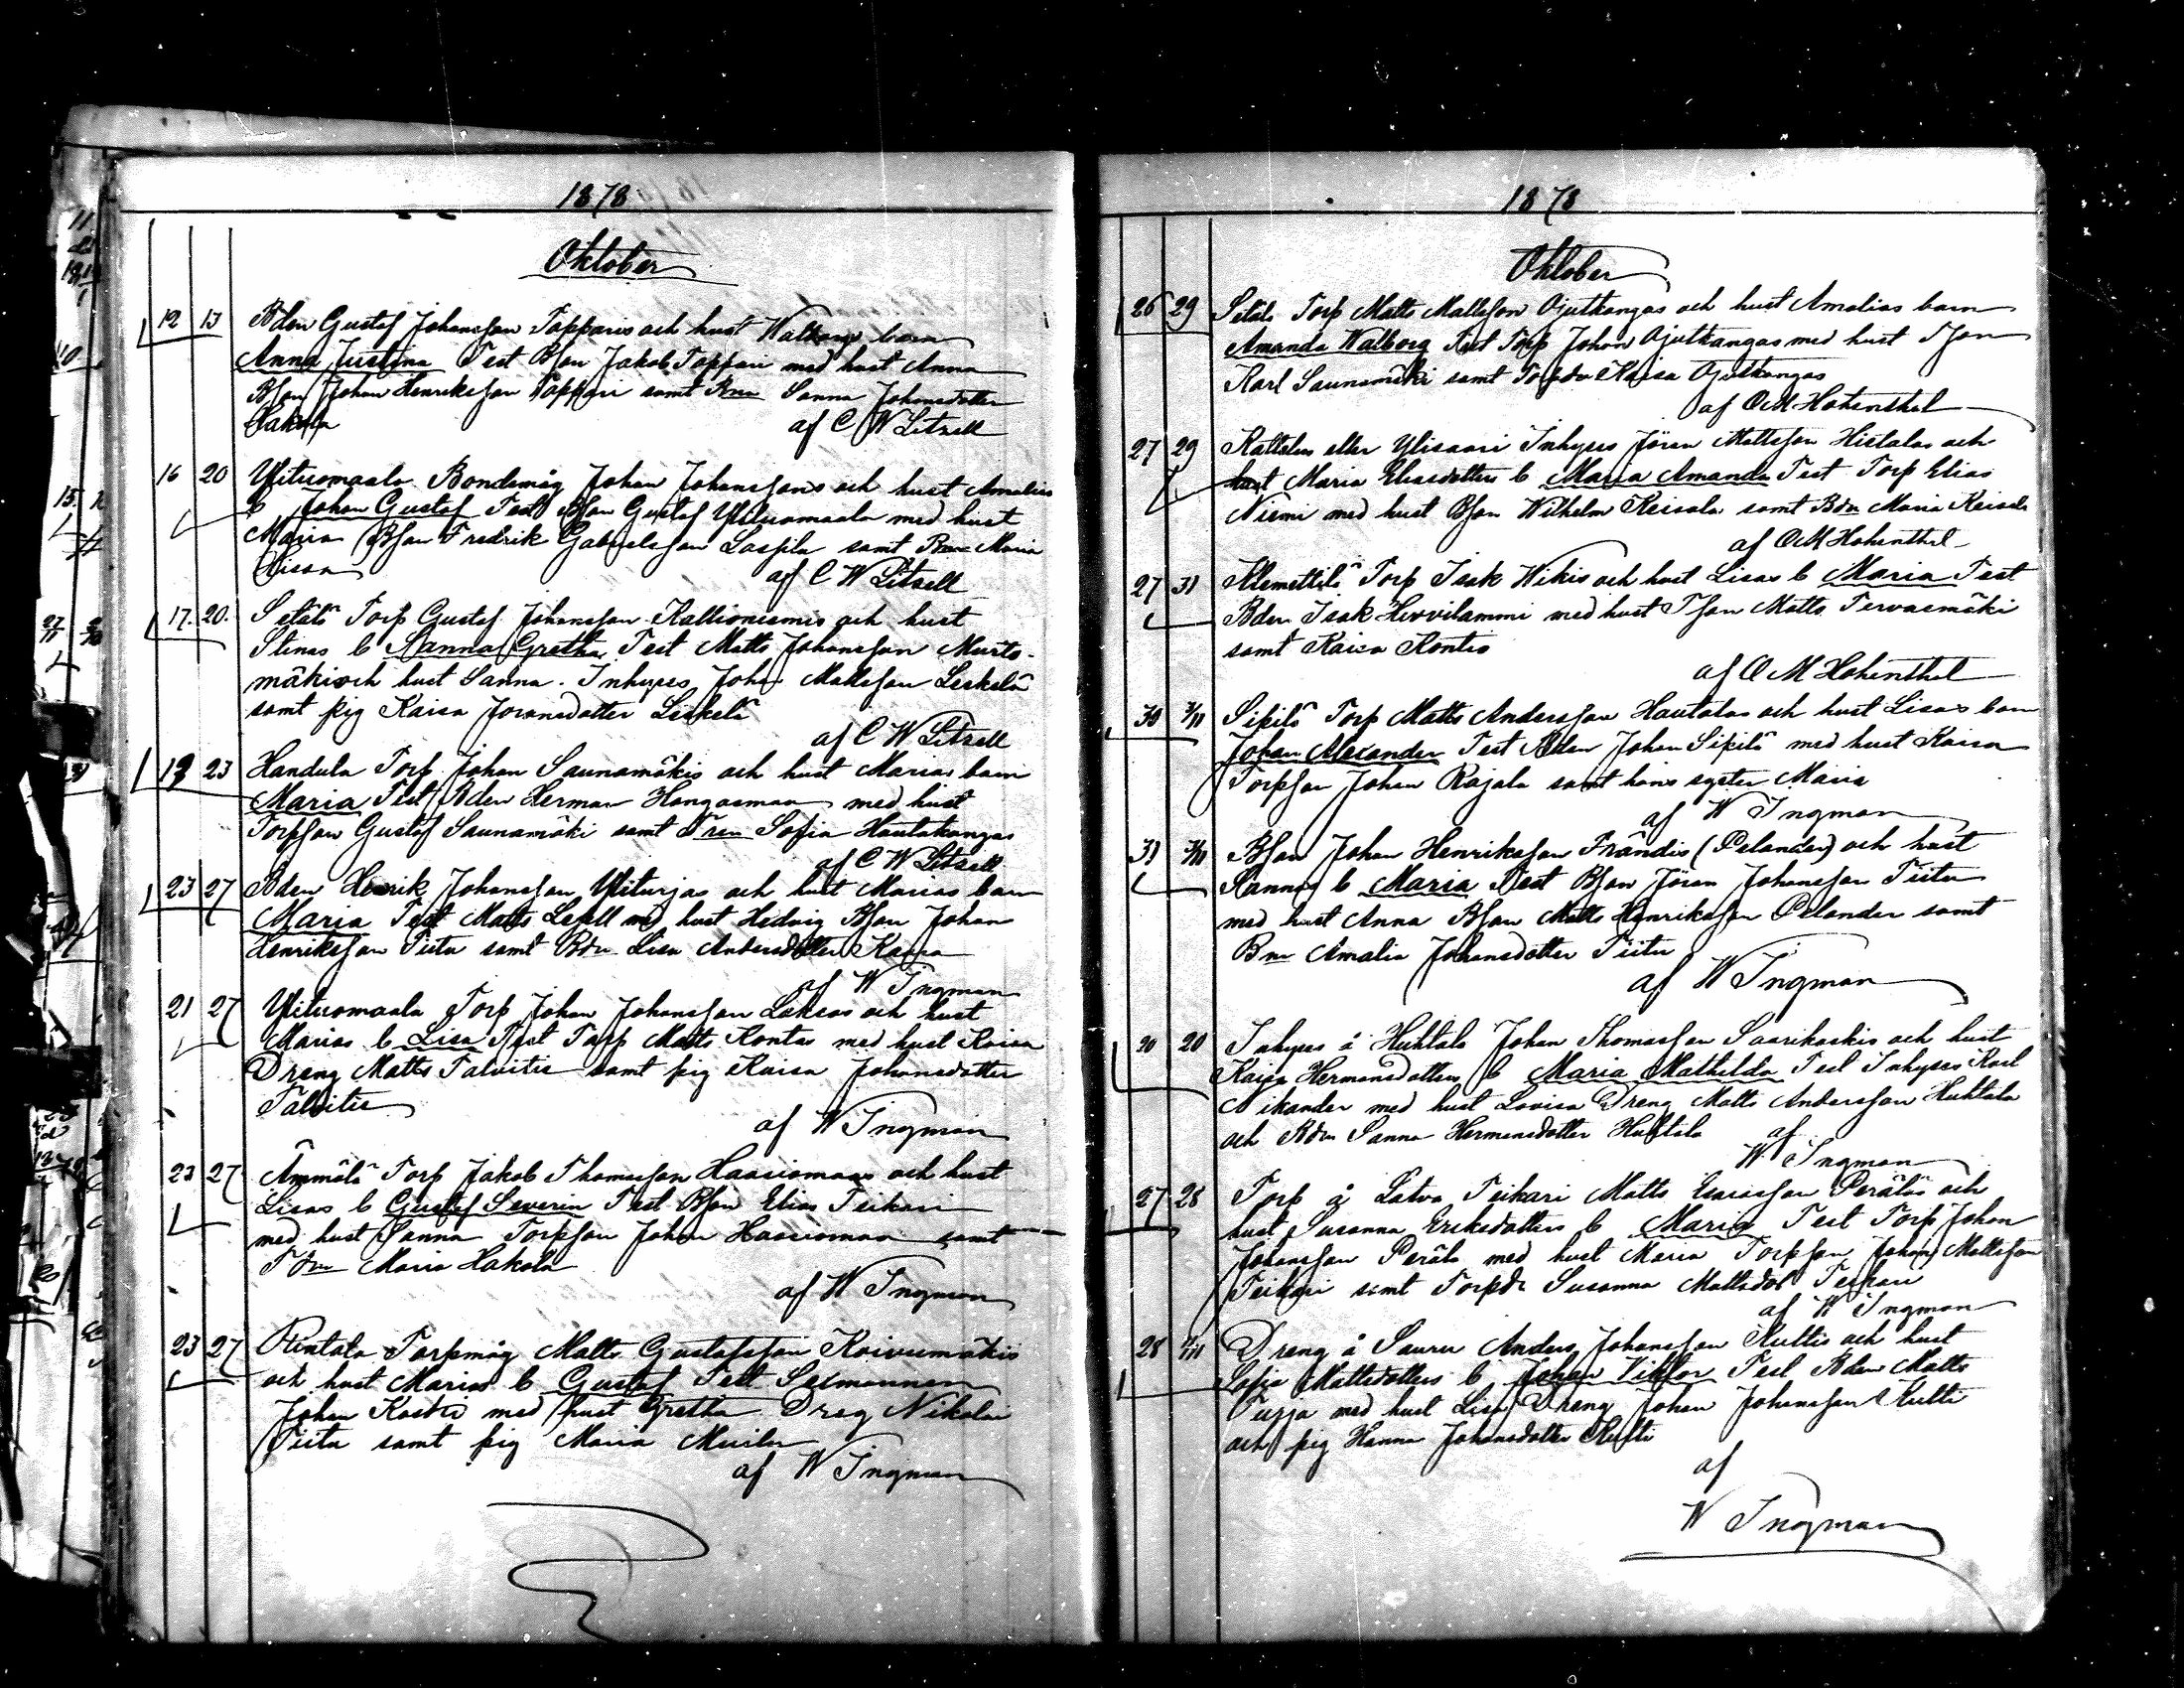 1878
Oktober
12 13 Bden Gustaf Johansson Topparis och hust Walborgs barn
Anna Justina Test Bson Jakob Toppari med hust Anna
Bson Johan Henriksson Toppari samt Sanna Johansdotter
Hakola af C W Litzell
16 20 Ylituomaala Bondemåg Johan Johanssons och hust Amalias
b Johan Gustaf Test Bson Gustaf Ylituomaala med hust
Maria Bson Fredrik Gabrielsson Lassila samt Maria
Hissa af C W Litzell
17. 20. Setälä Torp Gustaf Johansson Kallioniemis och hust
Stinas b Sanna Gretha Test Matts Johansson Murto-
mäki och hust Sanna. Inhyses Johan Mattsson Leskelä
samt pig Kaisa Joransdotter Leskelä
af C W Litzell
18 23 Handula Torp Johan Saunamäkis och hust Marias barn
Maria Test Bden Herman Hangasmaa med hust
Torpson Gustaf Saunamäki samt Sofia Hautakangas
af C W Litzell
23 27 Bden Henrik Johansson Yliturjas och hust Marias barn
Maria Test Matts Lesell med hust Hedvig Bson Johan
Henriksson Tiitu samt Bdn Lisa Andersdotter
af W Ingman
21 27 Ylituomaala Torp Johan Johansson och hust
Marias b Lisa Test Torp Matts Kontas med hust Kaisa
Dreng Matts Talvitie samt pig Kaisa Johansdotter
Talvitie
af W Ingman
23 27 Ämmälä Torp Jakob Thomasson Haasiomaas och hust
Lisas b Gustaf Severin Test Bson Elias Teikari
med hust Sanna Torpson Johan Haasiomaa samt
Tdn Maria Hakola
af W Ingman
23 27 Rintala Torpmåg Matts Gustafsson Koivumäkis
och hust Marias b Gustaf Test Sexmannen
Johan med hust Gretha Dreng Nikolai
Tiitu samt pig Maria
af W Ingman
1878
Oktober
26 29 Setälä Torp Matts Mattsson Ojutkangas och hust Amalias barn
Amanda Walborg Test Torp Johan Ojutkangas med hust Tson
Karl Saunamäki samt Torpdr Kaisa Ojutkangas
af O M Hohenthal
27 29 Kattelus eller Ylisaari Inhyses Jöran Mattsson Hietalas och
hust Maria Eliasdotters b Maria Amanda Test Torp Elias
Niemi med hust Bson Wilhelm Keisala samt Bdn Maria Keisala
af O M Hohenthal
27 31 Klemettilä Torp Isak Wikis och hust Lisas b Maria Test
Bden Isak Hirvilammi med hust Tson Matts Tervasmäki
samt Kaisa Kontas
af O M Hohenthal
30 3/11 Sipilä Torp Matts Andersson Hautalas och hust Lisas barn
Johan Alexander Test Bden Johan Sipilä med hust Kaisa
Torpson Johan Rajala samt hans syster Maria
af W Ingman
31 3/11 Bson Johan Henriksson Frändis (Pelander) och hust
Sannas b Maria Test Bson Jöran Johansson Tiitu
med hust Anna Bson Matts Henriksson Pelander samt
Amalia Johansdotter Tiitu
af W Ingman
20 20 Inhyses å Huhtala Johan Thomasson Saarikoskis och hust
Kaisa Hermansdotters b Maria Mathilda Test Inhyses Karl
Nikander med hust Lovisa Dreng Matts Andersson Huhtala
och Bdn Sanna Hermansdotter Huhtala af
W Ingman
27 28 Torp å Latva Teikari Matts Perälä och
hust Susanna Eriksdotters b Maria Test Torp Johan
Johansson Perälä med hust Maria Torpson Johan Mattsson
Teikari samt Torpdr Susanna Mattsdot Teikari
af W Ingman
28 Dreng å Saura Anders Johansson Kultis och hust
Sofia Mattsdotters b Johan Viktor Test Bden Matts
Turja med hust Lisa Dreng Johan Johansson Kulti
och pig Hanna Johansdotter Kulti
af
W Ingman